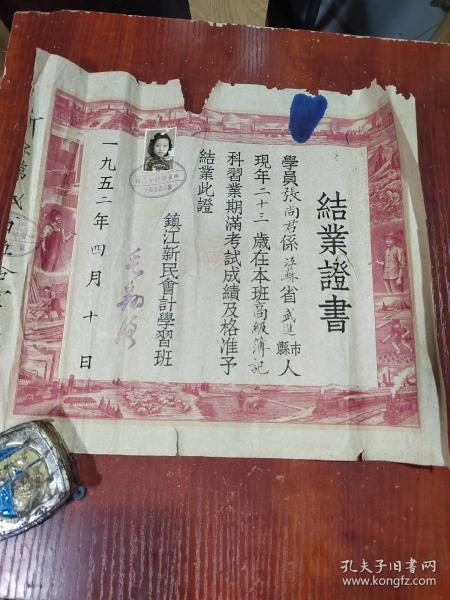 結業證書
學員張尚君係江蘇省武進縣市人
現年二十三歲在本班高級簿記
科習業期滿考試成績及格准予
結業此證
鎮江新民會計學習班
一九五二年四月十日
孔夫子旧书网
www.kongfz.com